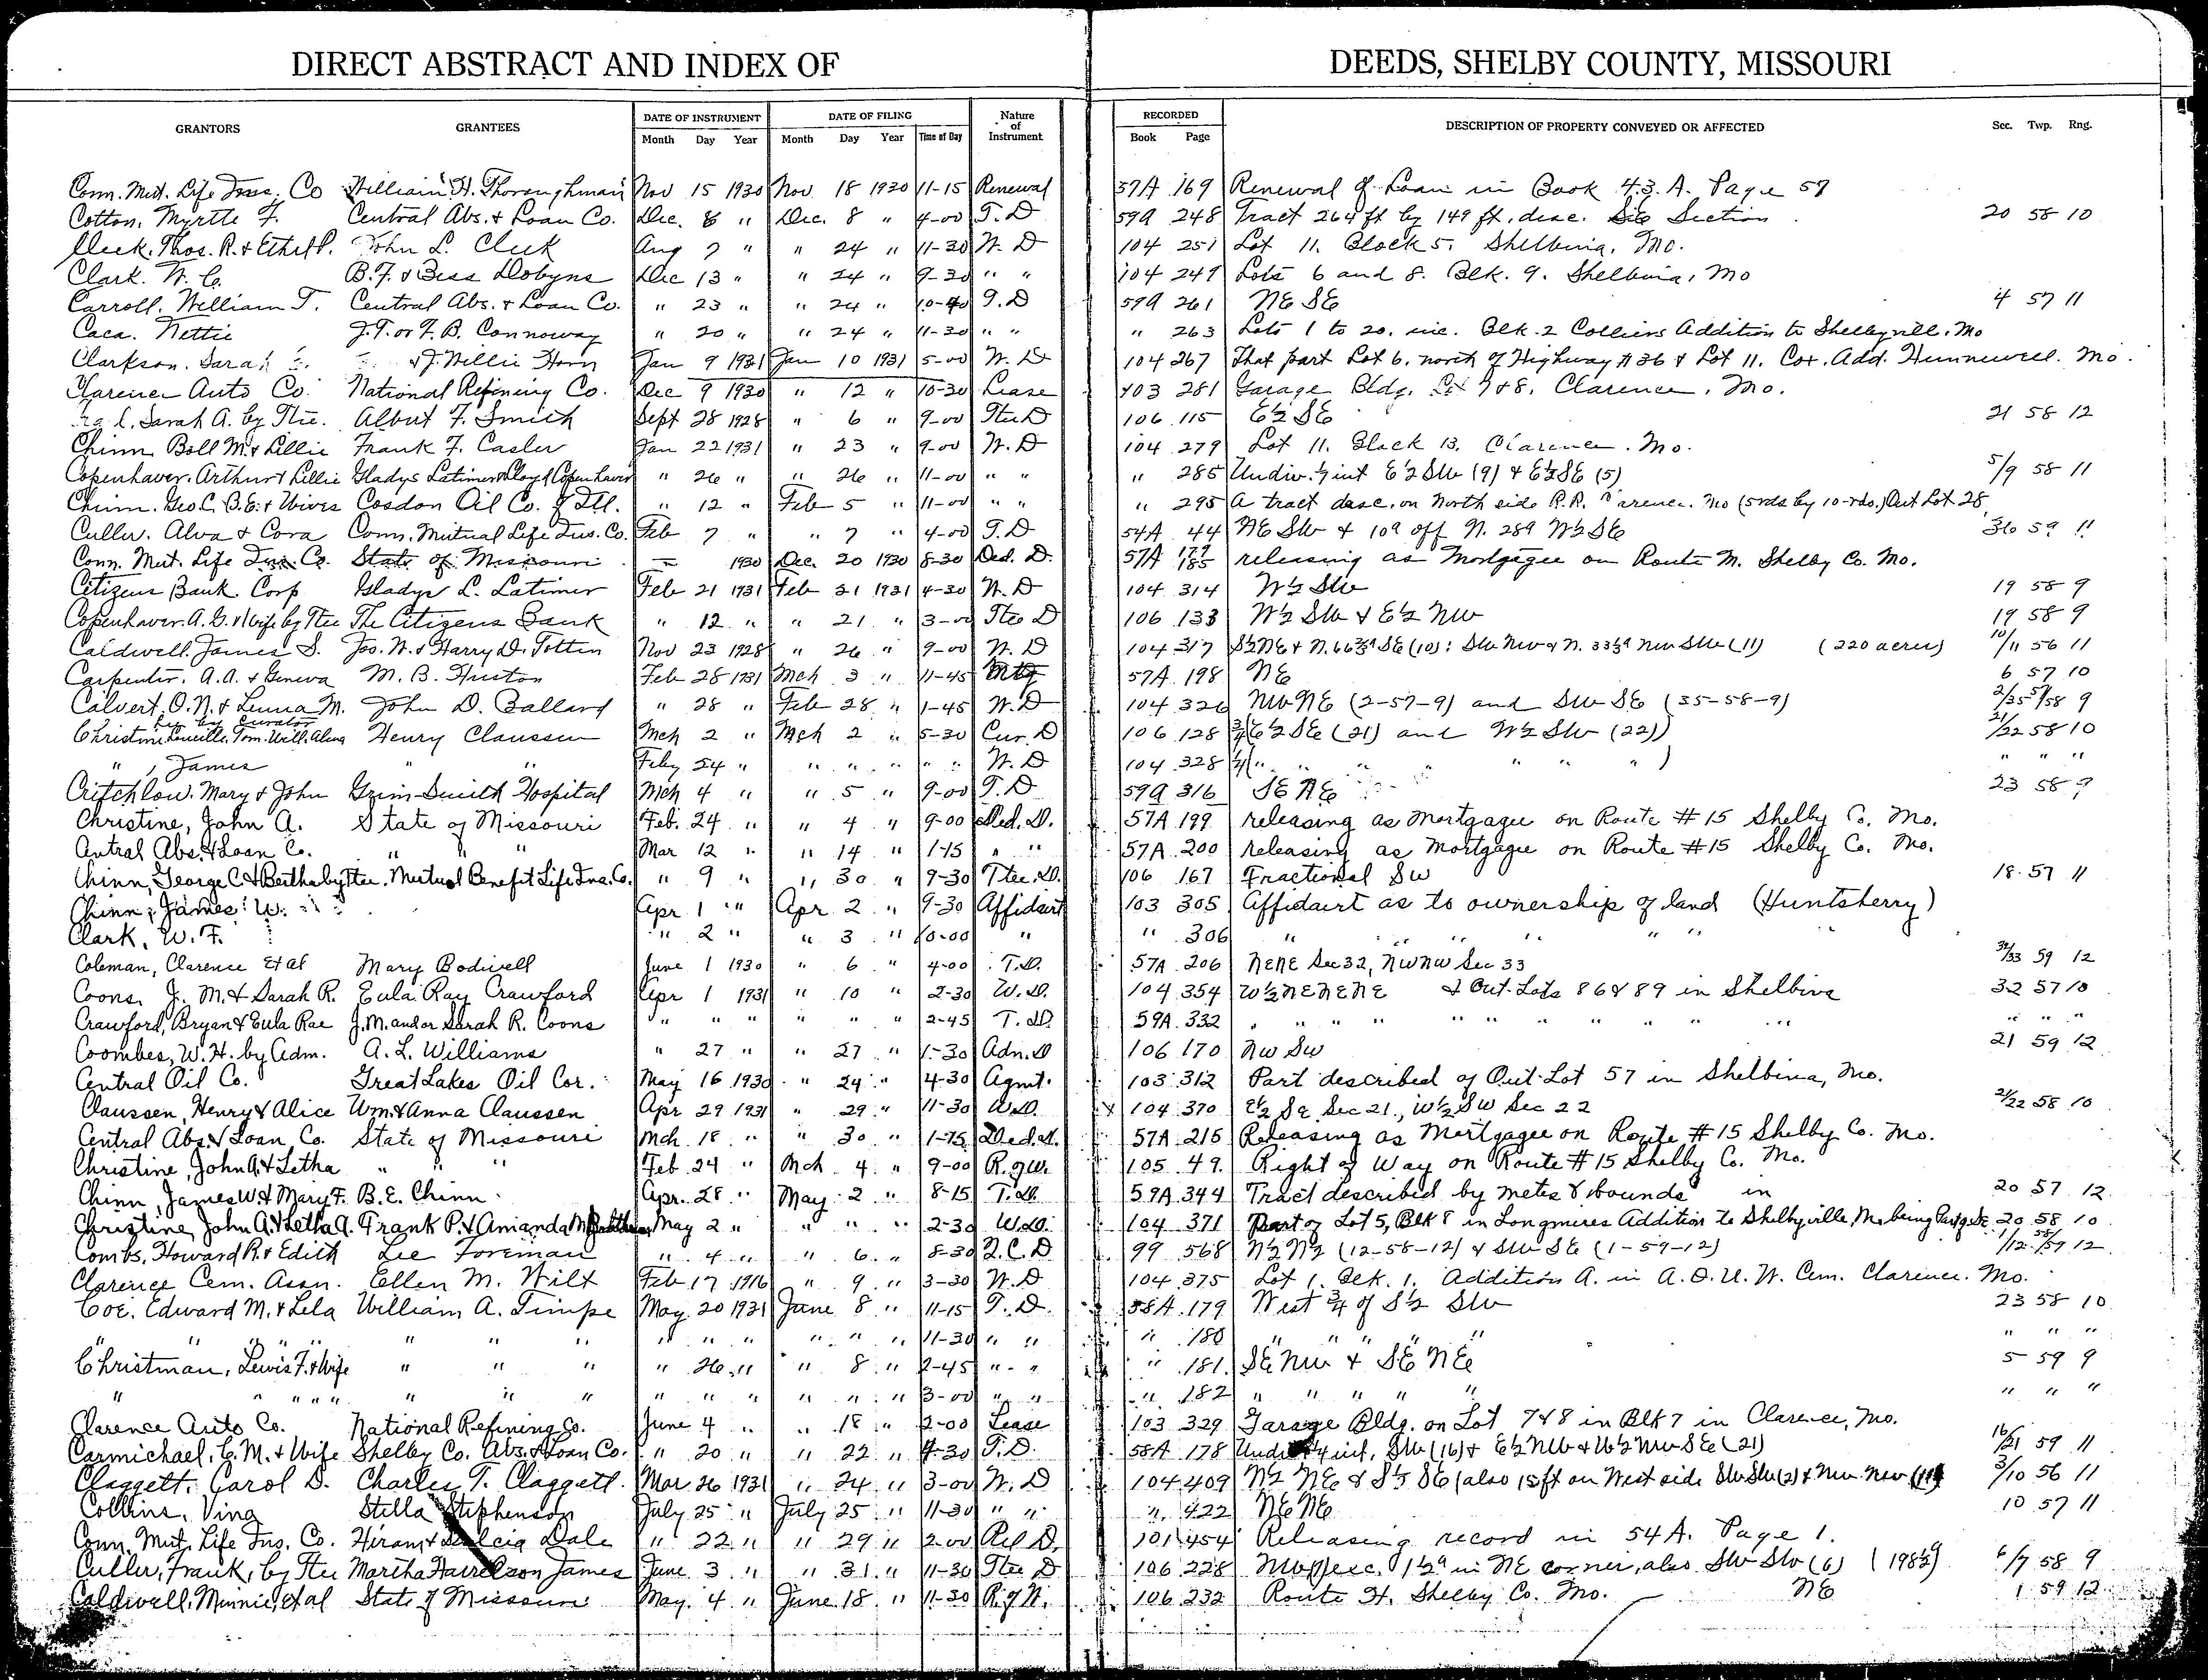 DIRECT ABSTRACT AND INDEX OF DEEDS, SHELBY COUNTY, MISSOURI
GRANTORS GRANTEES DATE OF INSTRUMENT DATE OF FILING Nature of Instrument RECORDED DESCRIPTION OF PROPERTY CONVEYED OR AFFECTED Sec. Twp. Rng.
Month Day Year Month Day Year Time of Day Book Page
Conn. Mut. Life Insu. Co William H. Thoroughman Nov 15 1930 Nov. 18 1930 11-15 Renewal 57A 169 Renewal of Loan in Book 43 A. Page 57
Cotton, Myrtle F. Central Abs. & Loan Co. Dec. 8 " Dec. 8 " 4-00 T.D 59A 248 Tract 264 ft by 149 ft. desc. Section 20 58 10
Cleek, Thos. R. & Ethel P. John L. Cleek Aug 7 " " 24 " 11-30 W.D 104 251 Lot 11. Block 5. Shelbina, Mo.
Clark. W. C. B.F. & Bess Dobyns Dec 13 " " 24 " 9-30 " " 104 249 Lots 6 and 8. Blk. 9. Shelbina, Mo
Carroll, William T. Central Abs. & Loan Co. " 23 " " 24 " 10-40 T.D 59A 261 NE SE 4 57 11
Caca. Nettie J.T. or F.B. Connoway " 20 " " 24 " 11-30 " " " 263 Lots 1 to 20. inc. Blk. 2 Colliers Addition to Shelbyvill. Mo
Clarkson, Sarah & J. Willie Horn Jan 9 1931 Jan 10 1931 5-00 W.D 104 267 That part Lot 6. north of Highway #36 & Lot 11. Cox. Add. Hunnewell. Mo.
Clarence Auto Co. National Refining Co. Dec 9 1930 " 12 " 10-30 Lease 103 281 Garage Bldg. Lot 7 & 8. Clarence, Mo.
Sarah A. by Ttee. Albert F. Smith Sept 28 1928 " 6 " 9-00 Ttee D 106 115 E½ SE 21 58 12
Chinn Boll M. & Lillie Frank F. Casler Jan 22 1931 " 23 " 9-00 W.D 104 279 Lot 11. Block 13. Clarence. Mo.
Copenhaver. Arthur & Lillie Gladys Latimer & Lloyd Copenhaver " 26 " " 26 " 11-00 " " " 285 Undiv. int E½ SW (9) & E½ SE (5) 5/9 58 11
Chinn. Geo. C. B.E. & Wives Cosdon Oil Co. of Ill. " 12 " Feb 5 " 11-00 " " " 295 A tract desc. on North side R.R. Clarence. Mo (5 rds by 10-rds.) Out Lot 28
Culler. Alva & Cora Conn. Mutual Life Ins. Co. Feb 7 " " 7 " 4-00 T.D 54A 44 NE SW & 10a off N. 28a W½ SE 36 59 11
Conn. Mut. Life Ins. Co. State of Missouri 1930 Dec. 20 1930 8-30 Ded. D. 57A 179 185 releasing as Mortgagee on Route M. Shelby Co. Mo.
Citizens Bank Corp Gladys L. Latimer Feb 21 1931 Feb 21 1931 4-30 W.D 104 314 W½ SW 19 58 9
Copenhaver. A.G. & Wife by Ttee The Citizens Bank " 12 " " 21 " 3-00 Ttee D 106 133 W½ SW & E½ NW 19 58 9
Caldwell. James S. Jos. W. & Harry D. Totten Nov 23 1928 " 26 " 9-00 W.D 104 317 S½ NE & N. 66⅔a SE (10): SW NW & N. 33⅓a NW SW (11) (220 acres) 10/11 56 11
Carpenter. A.A. & Geneva M. B. Huston Feb 28 1931 Mch 3 " 11-45 Mtg 57A 198 NE 6 57 10
Calvert. O.N. & Luna M. John D. Ballard " 28 " Feb 28 " 1-45 W.D 104 326 NW NE (2-57-9) and SW SE (35-58-9) 2/35 57/58 9
Christine Louville, Tom. Will. Alma by Curator Henry Claussen Mch 2 " Mch 2 " 5-30 Cur. D 106 128 ¾(E½ SE (21) and W½ SW (22)) 21/22 58 10
" , James " " Feby 24 " " " " " " W.D 104 328 ¼(" " " " " ") " " "
Critchlow. Mary & John Grim-Smith Hospital Mch 4 " " 5 " 9-00 T.D 59A 316 SE NE 23 58 9
Christine, John A. State of Missouri Feb. 24 " " 4 " 9-00 Ded. D. 57A 199 releasing as Mortgagee on Route #15 Shelby Co. Mo.
Central Abs. & Loan Co. " " " Mar 12 " " 14 " 1-15 " " 57A 200 releasing as Mortgagee on Route #15 Shelby Co. Mo.
Chinn, George C. & Bertha by Ttee. Mutual Benefit Life Ins. Co. " 9 " " 30 " 9-30 Ttee. D. 106 167 Fractional SW 18 57 11
Chinn, James W. Apr 1 " Apr 2 " 9-30 Affidavit 103 305 Affidavit as to ownership of land (Huntsberry)
Clark, W. F. " 2 " " 3 " 10-00 " " 306 " " " " " "
Coleman, Clarence Et al Mary Bodwell June 1 1930 " 6 " 4-00 T.D. 57A 206 NENE Sec 32, NWNW Sec 33 32/33 59 12
Coons, J. M. & Sarah R. Eula Ray Crawford Apr 1 1931 " 10 " 2-30 W.D. 104 354 W½ NENENE & Out-Lots 86 & 89 in Shelbina 32 57 10
Crawford, Bryan & Eula Rae J.M. and or Sarah R. Coons " " " " " " 2-45 T.D. 59A 332 " " " " " " " " " " " " "
Coombes, W.H. by Adm. A. L. Williams " 27 " " 27 " 1-30 Adm. D 106 170 NW SW 21 59 12
Central Oil Co. Great Lakes Oil Cor. May 16 1930 " 24 " 4-30 Agmt. 103 312 Part described of Out-Lot 57 in Shelbina, Mo.
Claussen, Henry & Alice Wm. & Anna Claussen Apr 29 1931 " 29 " 11-30 W.D. 104 370 E½ SE Sec 21., W½ SW Sec 22 21/22 58 10
Central Abs. & Loan Co. State of Missouri Mch. 18 " " 30 " 1-15 Ded. D. 57A 215 Releasing as Mortgagee on Route #15 Shelby Co. Mo.
Christine, John A. & Letha " " " Feb 24 " Mch 4 " 9-00 R. of W. 105 49 Right of Way on Route #15 Shelby Co. Mo.
Chinn, James W. & Mary F. B. E. Chinn Apr. 28 " May 2 " 8-15 T.D. 59A 344 Tract described by metes & bounds in 20 57 12
Christine, John A. & Letha A. Frank P. & Amanda M. May 2 " " " " 2-30 W.D. 104 371 Part of Lot 5, Blk 8 in Longmires Addition to Shelbyville, Mo being Part of Se 20 58 10
Combs, Howard R. & Edith Lee Foreman " 4 " " 6 " 8-30 Q.C.D 99 568 N½ N½ (12-58-12) & SW SE (1-59-12) 1/12 58/59 12
Clarence Cem. Assn. Ellen M. Wilt Feb 17 1916 " 9 " 3-30 W.D 104 375 Lot 1. Blk. 1. Addition A. in A.O.U.W. Cem. Clarence. Mo.
Coe. Edward M. & Lela William A. Timpe May 20 1931 June 8 " 11-15 T.D. 58A 179 West ¾ of S½ SW 23 58 10
" " " " " " " " " " " " " 11-30 " " " 180 " " " " " " "
Christman, Lewis F. & Wife " " " " 26 " " 8 " 2-45 " " " 181 SE NW & SE NE 5 59 9
" " " " " " " " " " " " " 3-00 " " " 182 " " " " " " " "
Clarence Auto Co. National Refining Co. June 4 " " 18 " 2-00 Lease 103 329 Garage Bldg. on Lot 7 & 8 in Blk 7 in Clarence, Mo.
Carmichael, C. M. & Wife Shelby Co. Abs. & Loan Co. " 20 " " 22 " 4-30 T.D. 58A 178 int, SW (16) & E½ NW & W½ NW SE (21) 16/21 59 11
Claggett, Carol D. Charles T. Claggett Mar 26 1931 " 24 " 3-00 W.D 104 409 N½ NE & S½ SE (also 15 ft on West side SW SW (2) & NW NW (11) 3/10 56 11
Collins, Ving Stella Stephenson July 25 " July 25 " 11-30 " " " 422 NE NE 10 57 11
Conn. Mut. Life Ins. Co. Hiram & Dale " 22 " " 29 " 2-00 Rel D. 101 454 Releasing record in 54 A. Page 1.
Culler, Frank, by Ttee Martha Harrelson James June 3 " " 31 " 11-30 Ttee D 106 228 exc. 1½a in NE corner, also SW SW (6) (198½a) 6/7 58 9
Caldwell, Minnie, et al State of Missouri May 4 " June 18 " 11-30 R. of W. 106 232 Route H. Shelby Co. Mo. NE 1 59 12